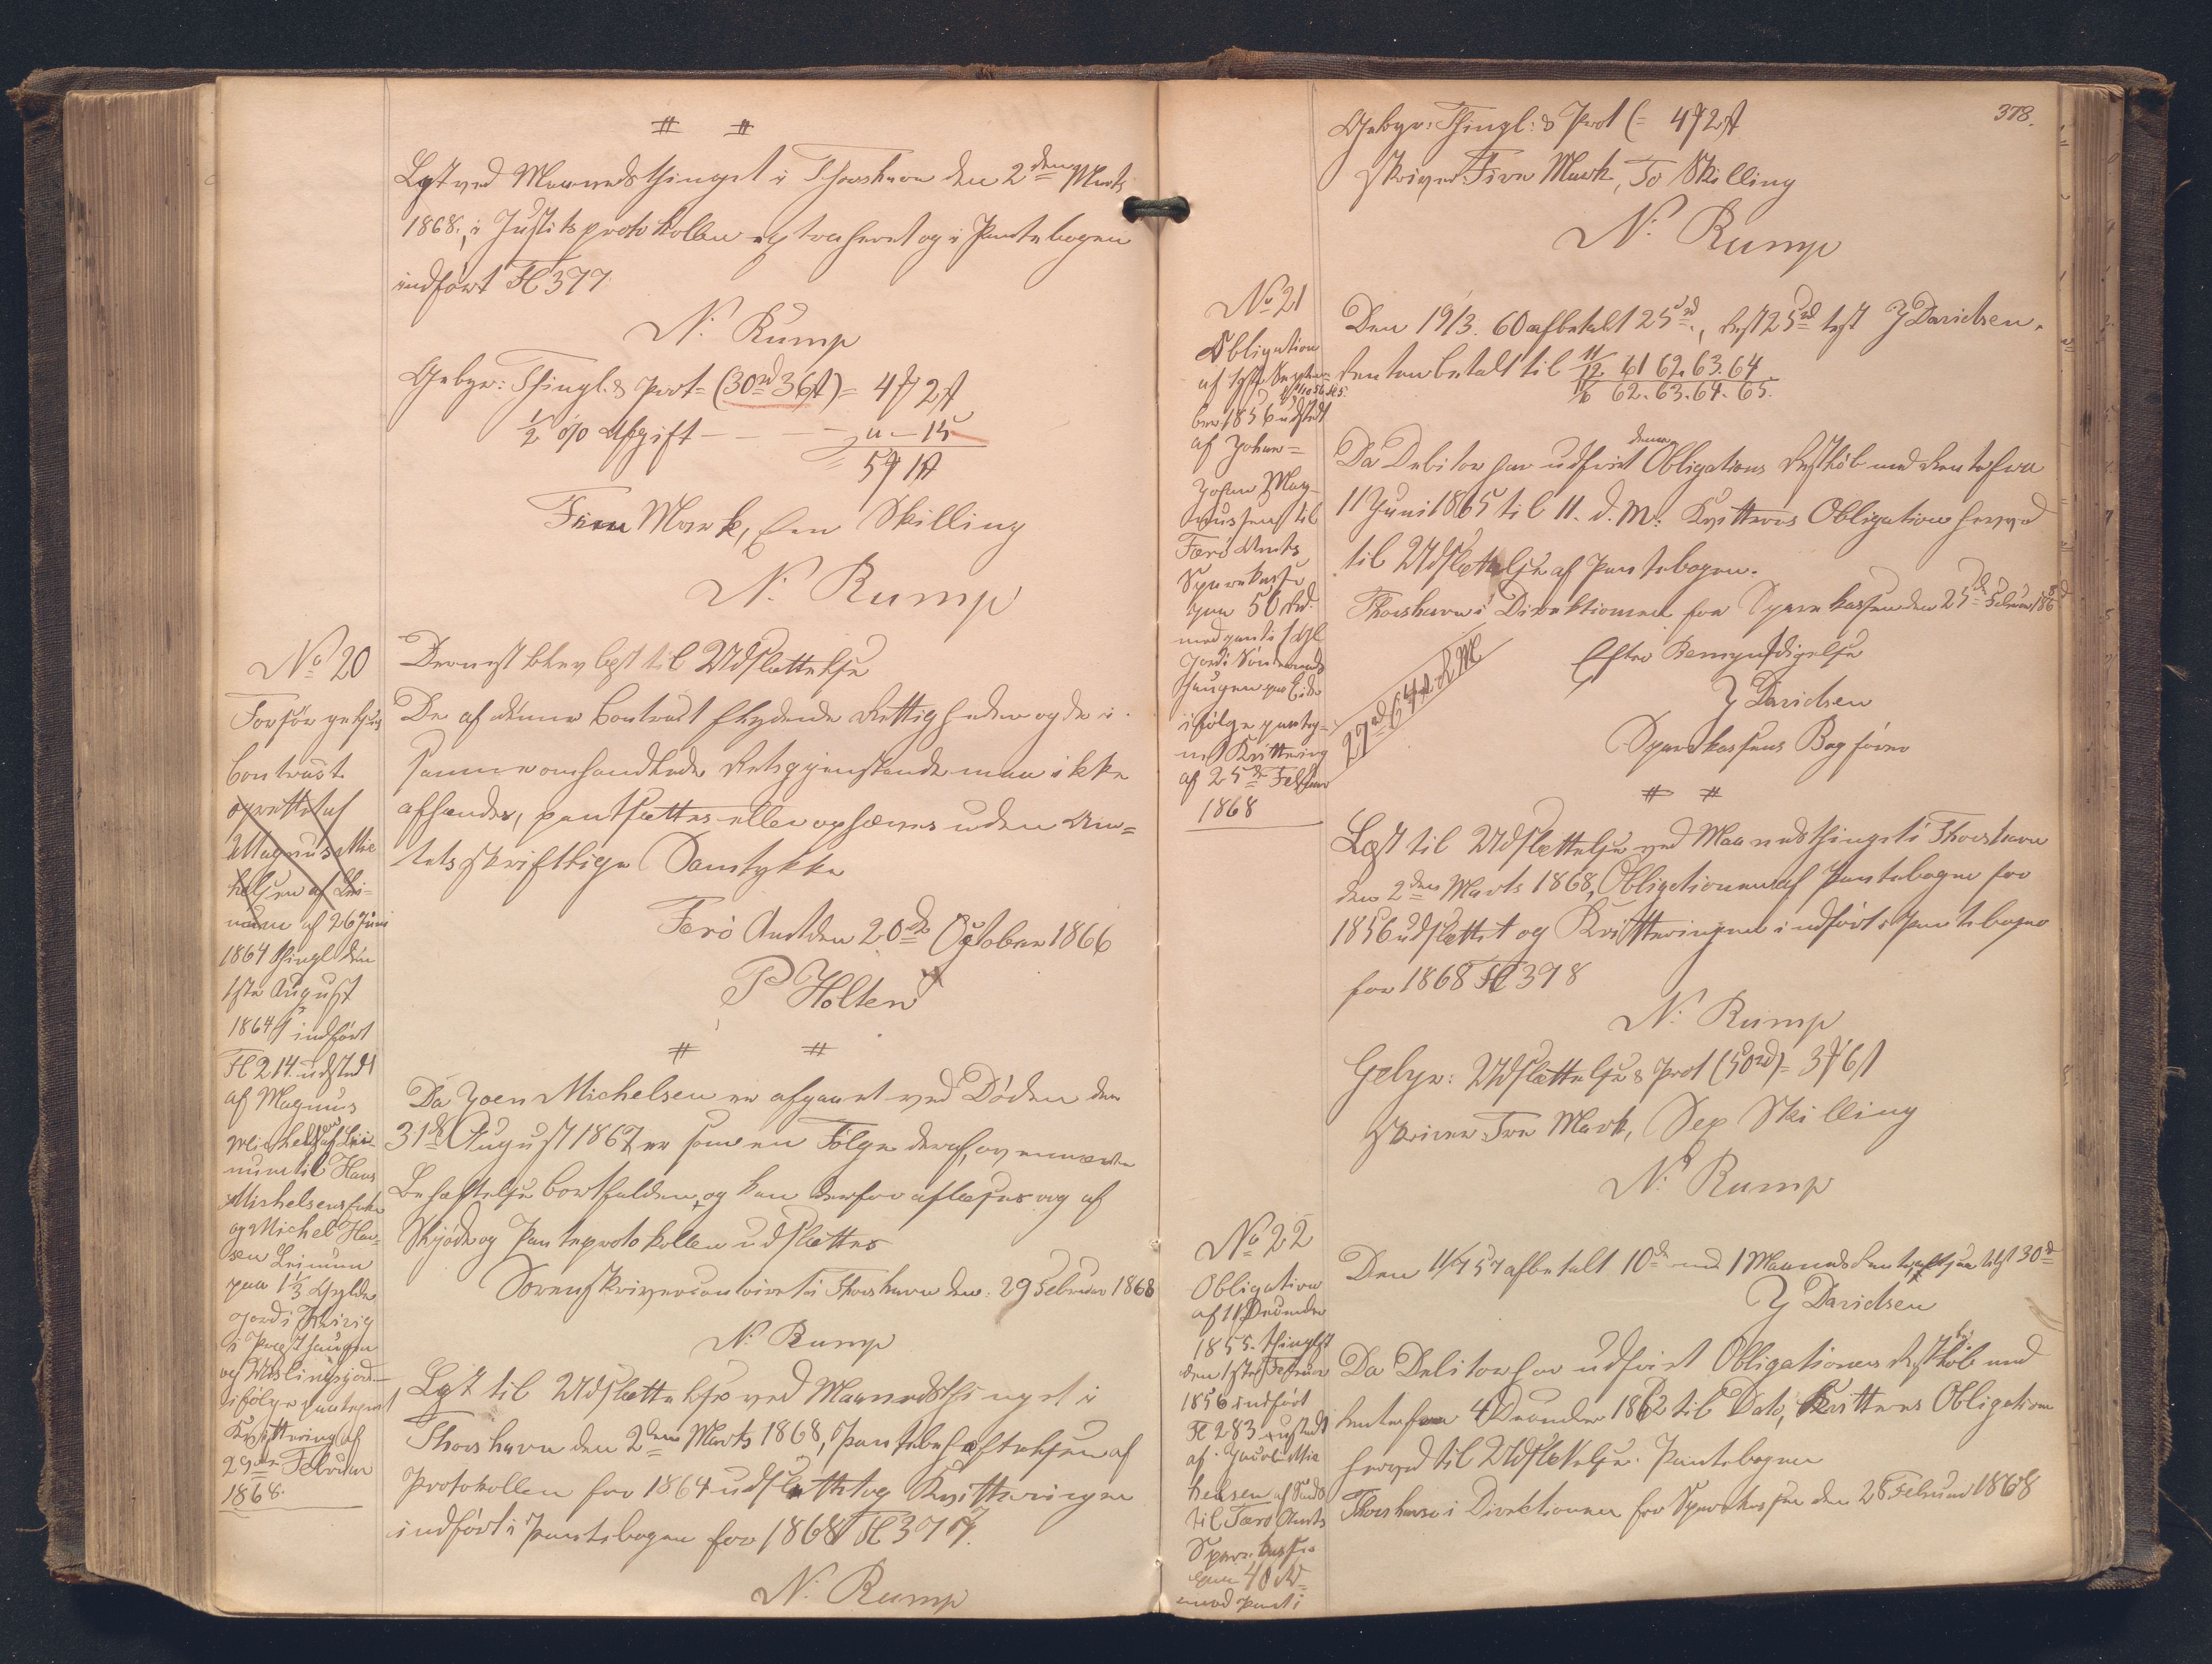 # #
Læst ved Maanedsthinget i Thorshavn den 2den Marts
1868., i Justitsprotokollen extraheret og i Pantebogen
indført Fl 377
N. Rump
Gebyr: Thingl. & Prot = (30rd 36s) = 4# 2s
1/2 % Afgift - - - - „ - 15
5# 1s
Fem Mark, Een Skilling
N. Rump
No 20
Forsørgelses
Contract
oprettet af
Magnus Mic
helsen af Lei-
num af 26 Juni
1864 thingl den
1ste August
1864 indført
Fl 214 udstedt
af Magnus
Michelsen af Lei
num til Hans
Michelsens Enke
og Michel Han-
sen Leinum
paa 1 1/3 Gylden
Jord i
i
og
ifølge paategnet
Kvittering af
29de Februar
1868.
Dernæst blev læst til Udslettelse
De af denne Contract flydende Rettigheder og de i
samme omhandlede Retsgjenstande maa ikke
afhændes, pantsættes eller ophæves uden Am=
tets skriftlige Samtykke
Færö Amt den 20de October 1866
P Holten
# #
Da Joen Michelsen er afgaaet ved Døden den
31te August 1867 er som en Følge deraf, ovennævnte
Behæftelse bortfalden, og kan derfor aflæses og af
Skjøde og Panteprotokollen udslettes
Sorenskrivercontoiret i Thorshavn den: 29 Februar 1868
N. Rump
Læst til Udslettelse ved Maanedsthinget i
Thorshavn den 2den Marts 1868, Pantebehæftelsen af
Protokollen for 1864 udslettet og Kvitteringen
indført i Pantebogen for 1868 Fl 377.
N. Rump
378.
Gebyr: Thingl: & Prot (= 4# 2s
skriver: Fire Mark, To Skilling
N. Rump
No 21
Obligation
af Septem-
ber 1856 udstedt
af Johan=
Johan Mag-
nussen til
Færö Amts
Sparekasse
paa 50 Rd.
med pant i
Jord i
Haugen paa Eide
ifølge paateg-
net Kvittering
af 25de Februar
1868
Den 19/3. 60 afbetalt 25rd., Rest 25rd test J Davidsen.
Renten betalt til 11/12 61 62. 63. 64
11/6 62. 63. 64. 65.
Da Debitor har udfriet denne Obligations Restkøb med Rente fra
11 Juni 1865 til 11. d. M: Kvitteres Obligation herved
til Udslettelse af Pantebogen.
Thorshavn i Direktionen for Sparekassen den 25de Februar 1868
Efter Bemyndigelse
J Davidsen
Sparekassens Bogfører
27rd 64s RM
# #
Læst til Udslettelse ved Maanedsthinget i Thorshavn
den 2den Marts 1868, Obligationen af Pantebogen for
1856 udslettet og Kvitteringen indført i Pantebogen
for 1868 Fl 378
N. Rump
Gebyr: Udslettelse & Prot (50rd) = 3# 6s
skriver Tre Mark, Sex Skilling
N. Rump
No 22
Obligation
af 11 December
1855. thinglyst
den 1ste Februar
1856 indført
Fl 283 udstedt
af Jacob Mic
helsen af Sund
til Færö Amts
Sparekasse
paa 40 Rd
mod Pant i
Den 11/6 57 afbetalt 10rd med 1 Maaneds Rente, 30rd
J Davidsen
Da Debitor har udfriet Obligationens Restkøb med
Rente fra 4 December 1862 til Dato, Kvitteres Obligation
herved til Udslettelse. Pantebogen
Thorshavn i Direktionen for Sparekassen den 28 Februar 1868